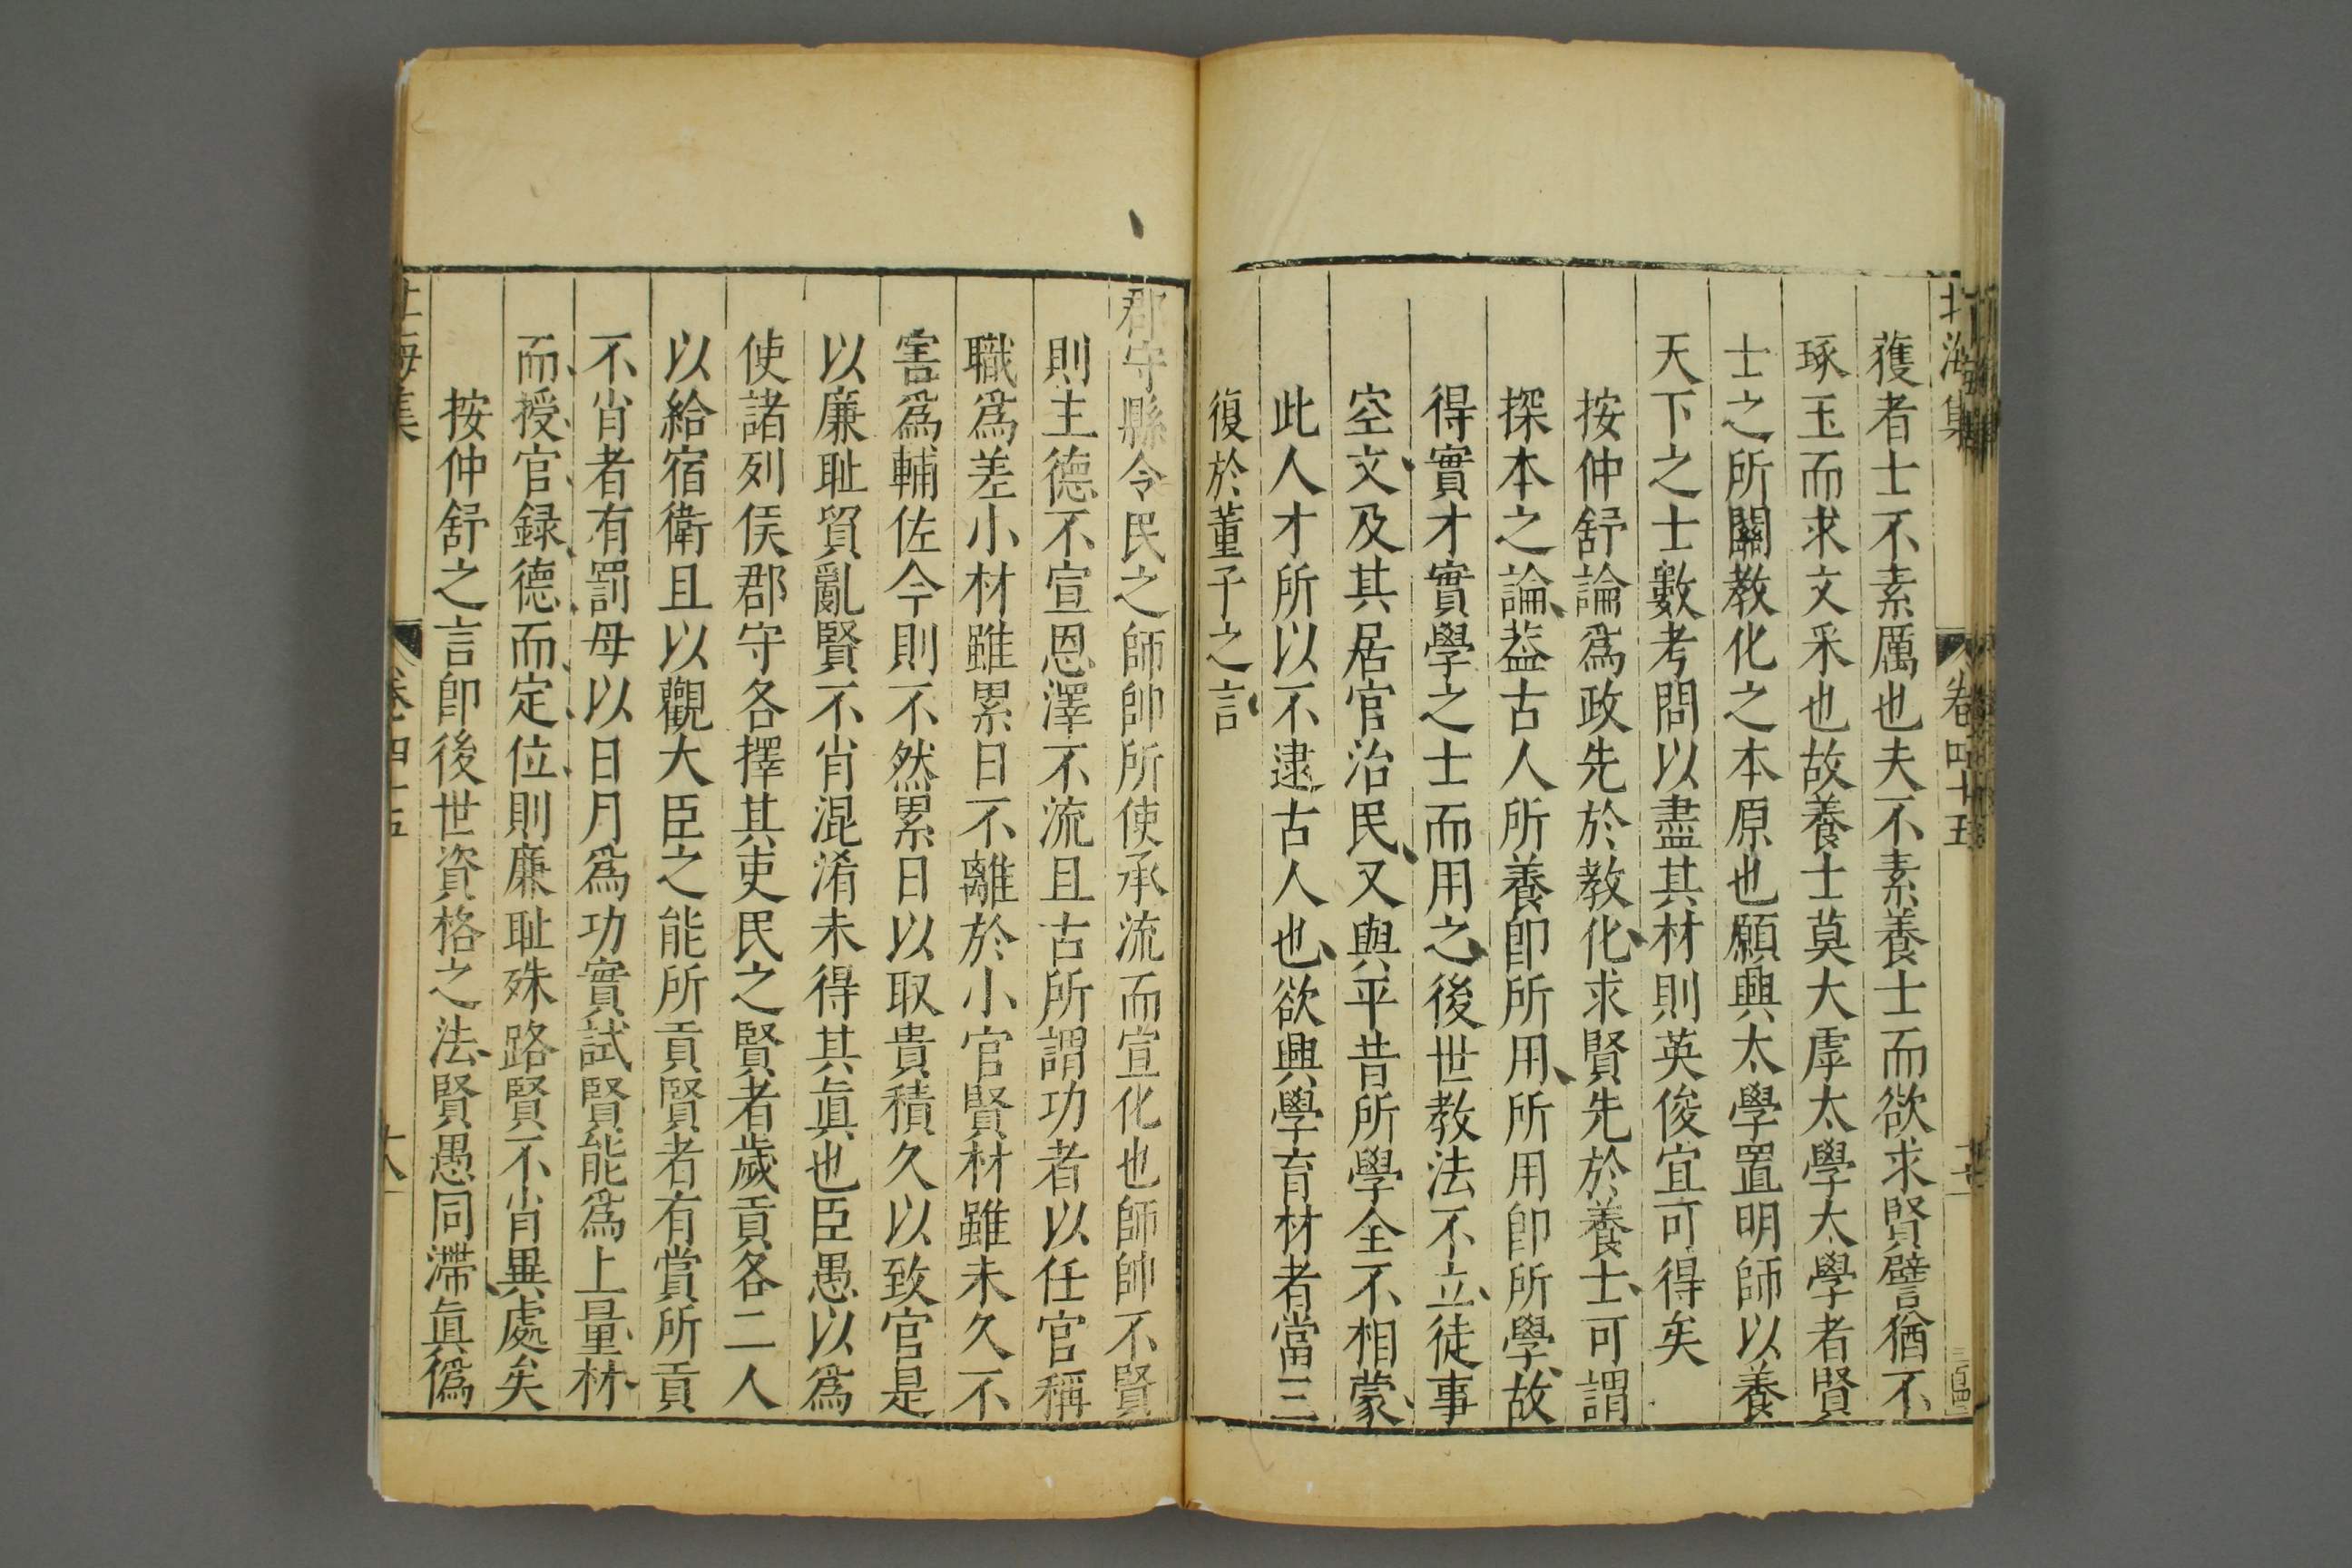 北海集 卷四十五 十七
獲者士不素厲也夫不素養士而欲求賢譬猶不
琢玉而求文采也故養士莫大虖太學太學者賢
士之所關教化之本原也願興太學置明師以養
天下之士數考問以盡其材則英俊宜可得矣
按仲舒論爲政先於教化求賢先於養士可謂
探本之論葢古人所養卽所用所用卽所學故
得實才實學之士而用之後世教法不立徒事
空文及其居官治民又與平昔所學全不相蒙
此人才所以不逮古人也欲興學育材者當三
復於董子之言
郡守縣令民之師帥所使承流而宣化也師帥不賢
則主德不宣恩澤不流且古所謂功者以任官稱
職爲差小材雖累日不離於小官賢材雖未久不
害爲輔佐今則不然累日以取貴積久以致官是
以廉耻貿亂賢不肖混淆未得其眞也臣愚以爲
使諸列侯郡守各擇其吏民之賢者歲貢各二人
以給宿衛且以觀大臣之能所貢賢者有賞所貢
不肖者有罰毋以日月爲功實試賢能爲上量材
而授官録德而定位則廉耻殊路賢不肖異處矣
按仲舒之言卽後世資格之法賢愚同滯眞僞
北海集 卷四十五 十八